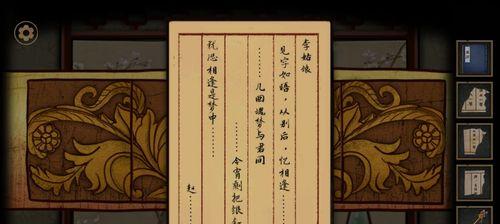 李姑娘
见字如晤，从别后，忆相逢……
……几回魂梦与君同
……今宵剩把银
犹恐相逢是梦中……
赵……